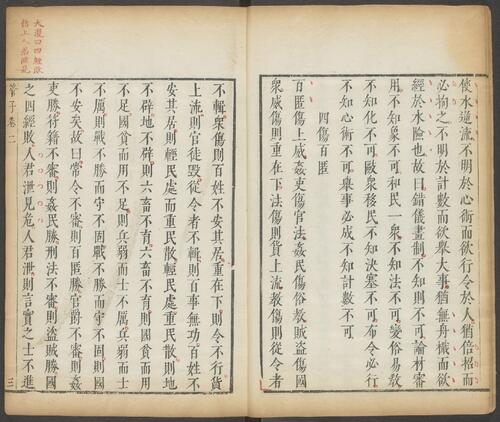 使水逆流不明於心術而欲行令於人猶倍招而
必拘之不明於計數而欲舉大事猶無舟楫而欲
經於水險也故曰錯儀畫制不知則不可論材審
用不知象不可和民一衆不知法不可變俗易敎
不知化不可敺衆移民不知決塞不可布令必行
不知心術不可舉事必成不知計數不可
四傷百匿
百匿傷上威姦吏傷官法姦民傷俗敎賊盜傷國
衆威傷則重在下法傷則貨上流敎傷則從令者
不輯衆傷則百姓不安其居重在下則令不行貨
上流則官徒毀從令者不輯則百事無功百姓不
安其居則輕民處而重民散輕民處重民散則地
不辟地不辟則六畜不育六畜不育則國貧而用
不足國貧而用不足則兵弱而士不厲兵弱而士
不厲則戰不勝而守不固戰不勝而守不固則國
不安矣故曰常令不審則百匿勝官爵不審則姦
吏勝符籍不審則姦民勝刑法不審則盜賊勝國
之四經敗人君泄見危人君泄則言實之士不進
管子卷二 三
四經敗